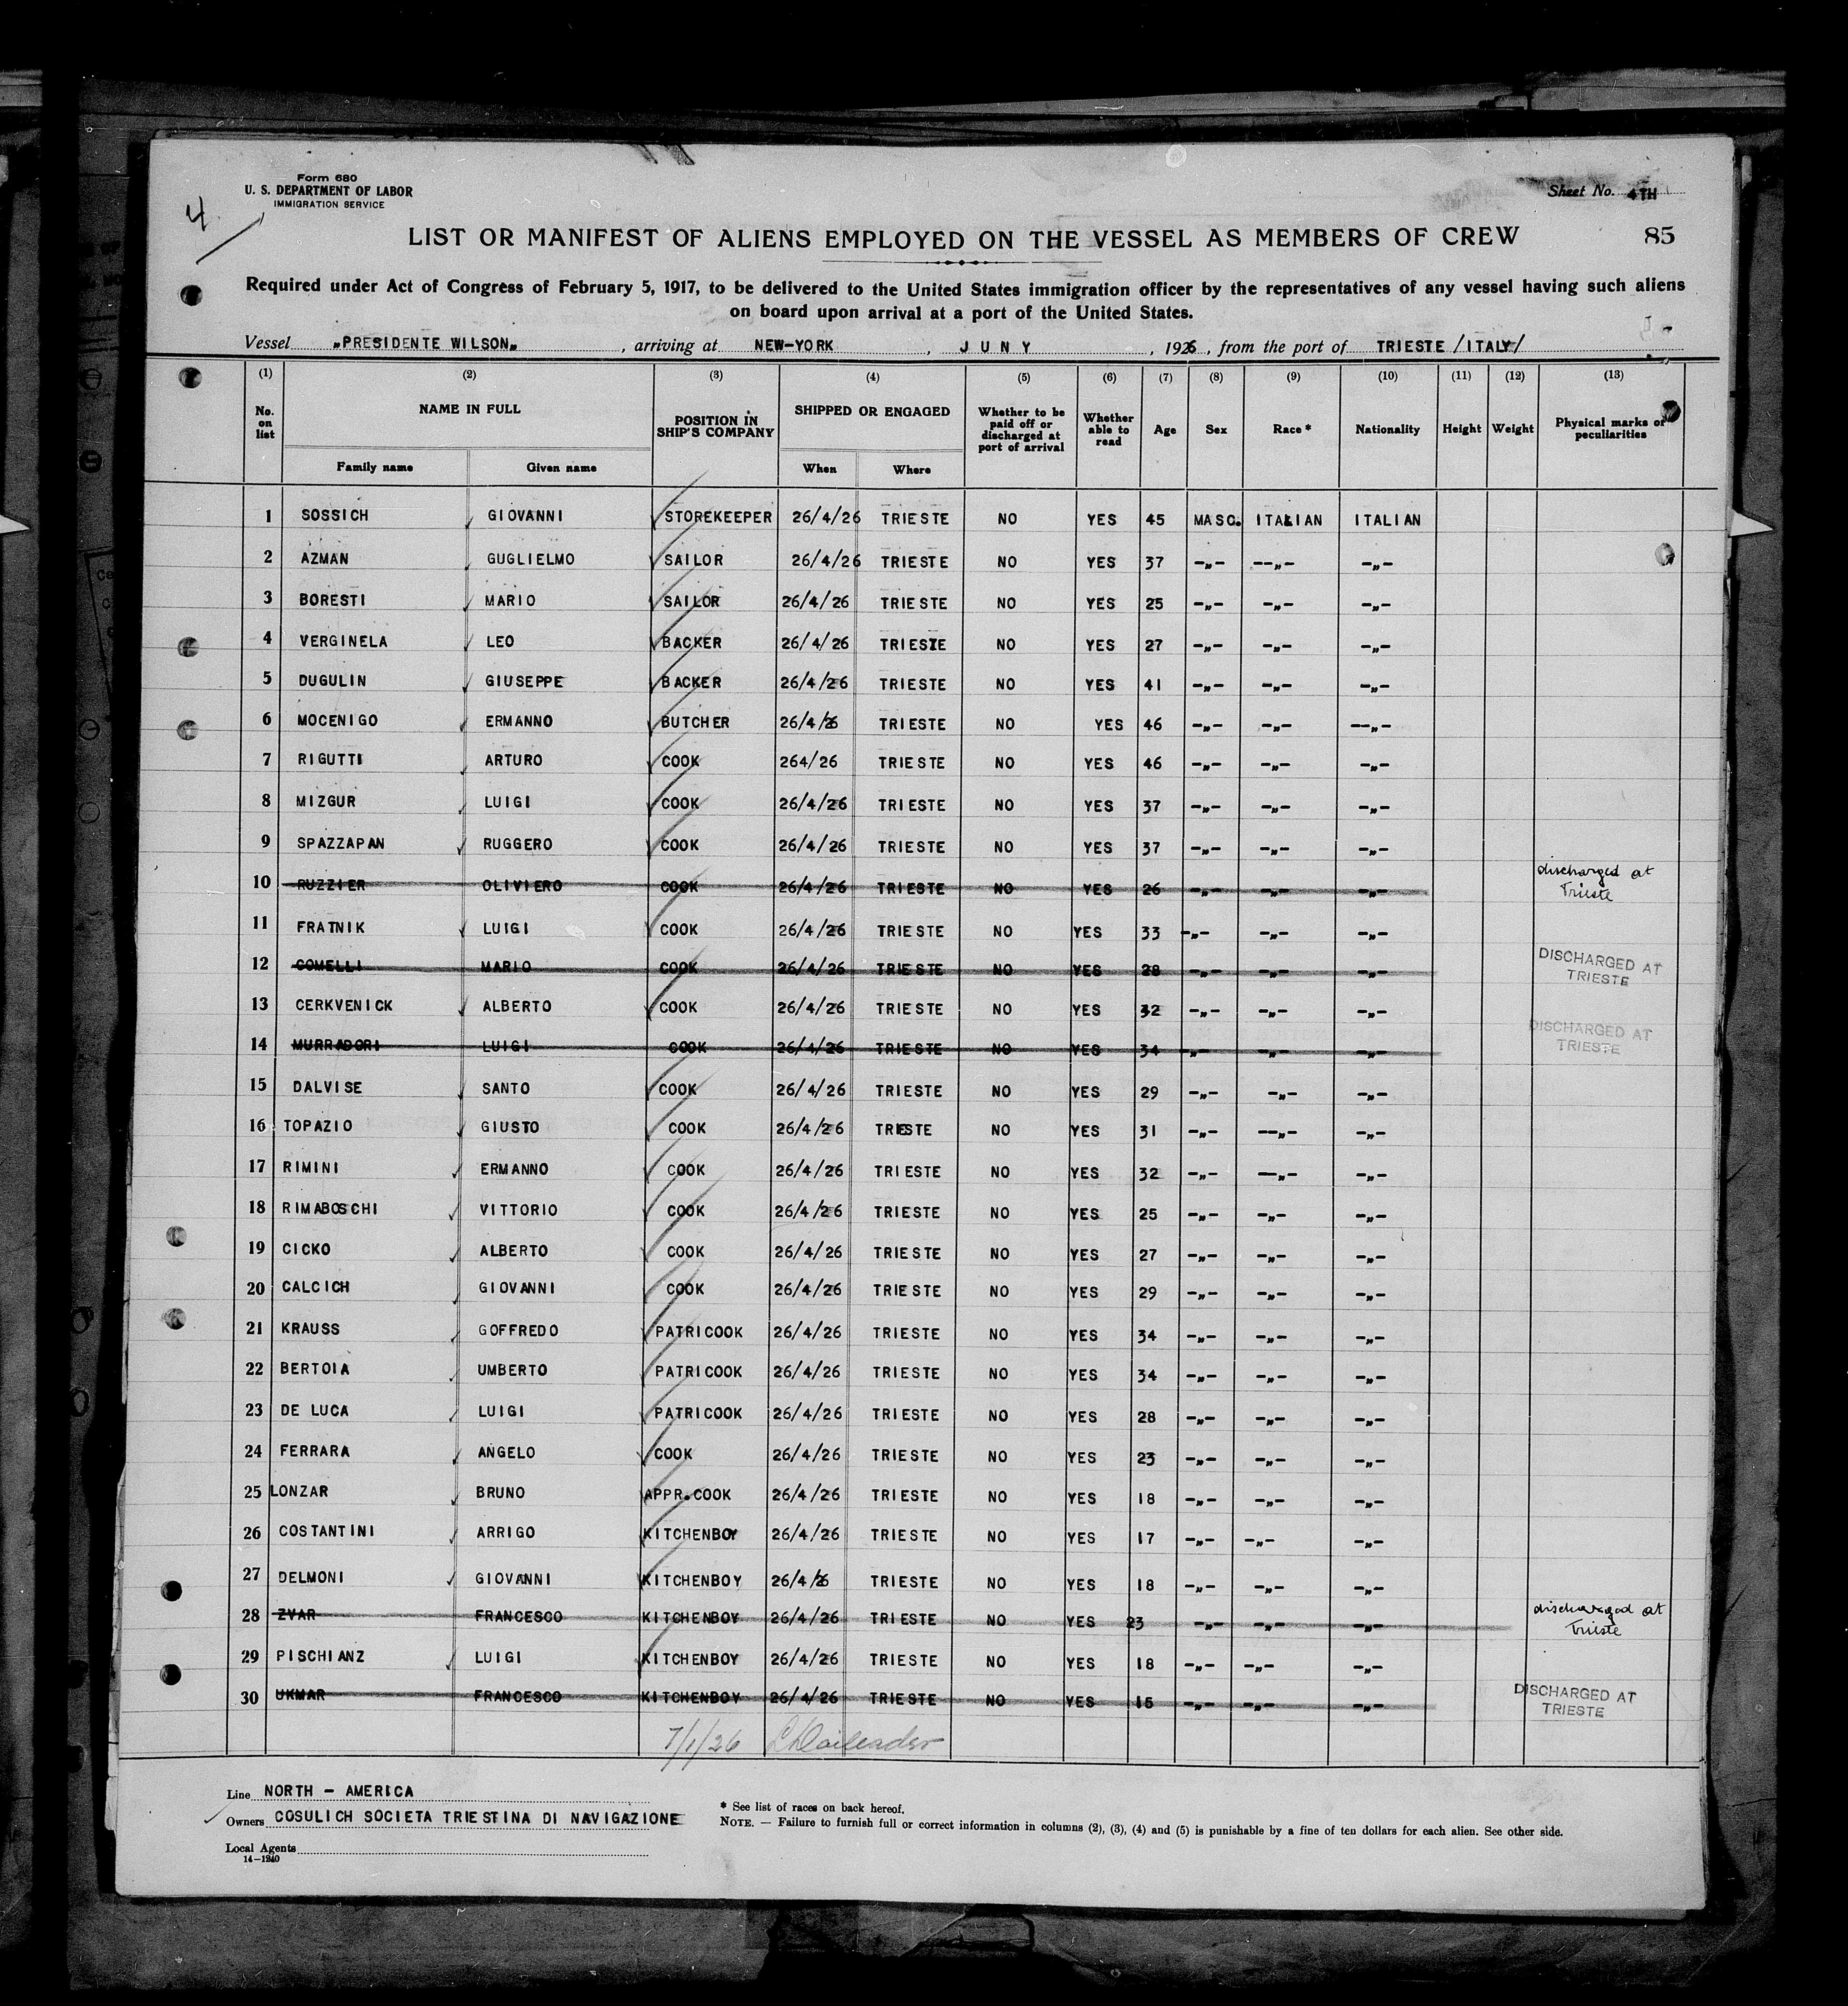 Form 680
U. S. DEPARTMENT OF LABOR
IMMIGRATION SERVICE
Sheet No. 4TH
4
LIST OR MANIFEST OF ALIENS EMPLOYED ON THE VESSEL AS MEMBERS OF CREW
85
Required under Act of Congress of February 5, 1917, to be delivered to the United States immigration officer by the representatives of any vessel having such aliens
on board upon arrival at a port of the United States.
Vessel „PRESIDENTE WILSON„ , arriving at NEW-YORK , JUNY , 1926 , from the port of TRIESTE /ITALY/
(1) (2) (3) (4) (5) (6) (7) (8) (9) (10) (11) (12) (13)
No. on list NAME IN FULL Family name Given name POSITION IN SHIP'S COMPANY SHIPPED OR ENGAGED When Where Whether to be paid off or discharged at port of arrival Whether able to read Age Sex Race * Nationality Height Weight Physical marks or peculiarities
1 SOSSICH GIOVANNI STOREKEEPER 26/4/26 TRIESTE NO YES 45 MASC. ITALIAN ITALIAN
2 AZMAN GUGLIELMO SAILOR 26/4/26 TRIESTE NO YES 37 -„- --„- -„-
3 BORESTI MARIO SAILOR 26/4/26 TRIESTE NO YES 25 -„- -„- -„-
4 VERGINELA LEO BACKER 26/4/26 TRIESTE NO YES 27 -„- -„- -„-
5 DUGULIN GIUSEPPE BACKER 26/4/26 TRIESTE NO YES 41 -„- -„- -„-
6 MOCENIGO ERMANNO BUTCHER 26/4/26 TRIESTE NO YES 46 -„- -„- --„-
7 RIGUTTI ARTURO COOK 264/26 TRIESTE NO YES 46 -„- -„- -„-
8 MIZGUR LUIGI COOK 26/4/26 TRIESTE NO YES 37 -„- -„- -„-
9 SPAZZAPAN RUGGERO COOK 26/4/26 TRIESTE NO YES 37 -„- -„- -„-
10 RUZZIER OLIVIERO COOK 26/4/26 TRIESTE NO YES 26 -„- -„- -„- discharged at Trieste
11 FRATNIK LUIGI COOK 26/4/26 TRIESTE NO YES 33 -„- -„- -„-
12 COMELLI MARIO COOK 26/4/26 TRIESTE NO YES 28 -„- -„- -„- DISCHARGED AT TRIESTE
13 CERKVENICK ALBERTO COOK 26/4/26 TRIESTE NO YES 32 -„- -„- -„-
14 MURRADORI LUIGI COOK 26/4/26 TRIESTE NO YES 34 -„- -„- -„- DISCHARGED AT TRIESTE
15 DALVISE SANTO COOK 26/4/26 TRIESTE NO YES 29 -„- -„- -„-
16 TOPAZIO GIUSTO COOK 26/4/26 TRIESTE NO YES 31 -„- --„- -„-
17 RIMINI ERMANNO COOK 26/4/26 TRIESTE NO YES 32 -„- --„- -„-
18 RIMABOSCHI VITTORIO COOK 26/4/26 TRIESTE NO YES 25 -„- -„- -„-
19 CICKO ALBERTO COOK 26/4/26 TRIESTE NO YES 27 -„- -„- -„-
20 CALCICH GIOVANNI COOK 26/4/26 TRIESTE NO YES 29 -„- -„- -„-
21 KRAUSS GOFFREDO PATRICOOK 26/4/26 TRIESTE NO YES 34 -„- -„- -„-
22 BERTOIA UMBERTO PATRICOOK 26/4/26 TRIESTE NO YES 34 -„- -„- -„-
23 DE LUCA LUIGI PATRICOOK 26/4/26 TRIESTE NO YES 28 -„- -„- -„-
24 FERRARA ANGELO COOK 26/4/26 TRIESTE NO YES 23 -„- -„- -„-
25 LONZAR BRUNO APPR.COOK 26/4/26 TRIESTE NO YES 18 -„- -„- -„-
26 COSTANTINI ARRIGO KITCHENBOY 26/4/26 TRIESTE NO YES 17 -„- -„- -„-
27 DELMONI GIOVANNI KITCHENBOY 26/4/26 TRIESTE NO YES 18 -„- -„- -„-
28 ZVAR FRANCESCO KITCHENBOY 26/4/26 TRIESTE NO YES 23 -„- -„- -„- discharged at Trieste
29 PISCHIANZ LUIGI KITCHENBOY 26/4/26 TRIESTE NO YES 18 -„- -„- -„-
30 UKMAR FRANCESCO KITCHENBOY 26/4/26 TRIESTE NO YES 15 -„- -„- -„- DISCHARGED AT TRIESTE
7/1/26
Line NORTH - AMERICA
Owners COSULICH SOCIETA TRIESTINA DI NAVIGAZIONE
Local Agents
14-1240
* See list of races on back hereof.
NOTE. — Failure to furnish full or correct information in columns (2), (3), (4) and (5) is punishable by a fine of ten dollars for each alien. See other side.